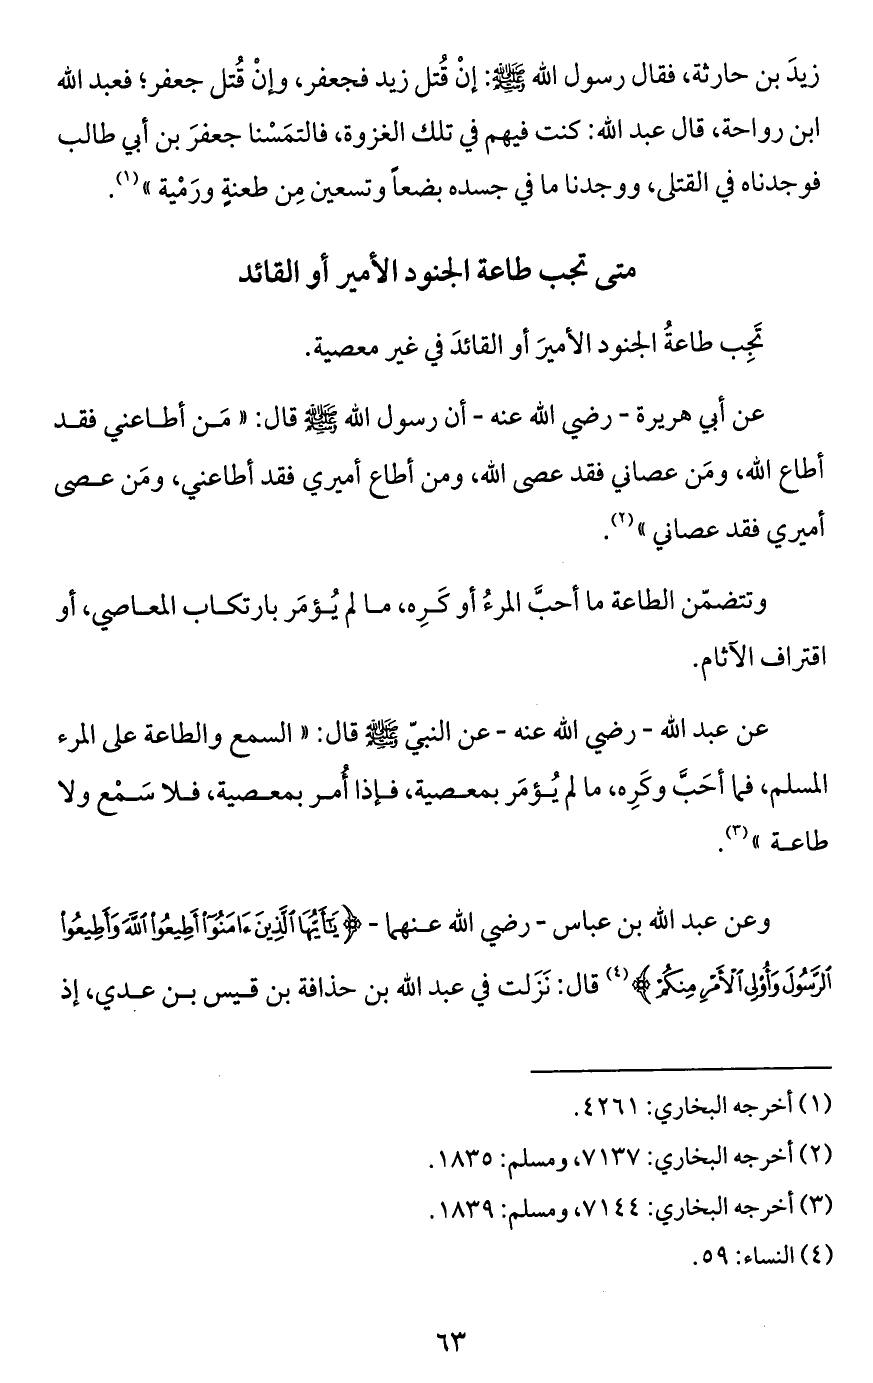 زيدَ بن حارثة، فقال رسول الله ﷺ: إنْ قُتل زيد فجعفر، وإنْ قُتل جعفر؛ فعبد الله
ابن رواحة، قال عبد الله: كنت فيهم في تلك الغزوة، فالتمَسْنا جعفرَ بن أبي طالب
فوجدناه في القتلى، ووجدنا ما في جسده بضعاً وتسعين مِن طعنةٍ ورَمْية »(١).
متى تجب طاعة الجنود الأمير أو القائد
تَجِب طاعةُ الجنود الأميرَ أو القائدَ في غير معصية.
عن أبي هريرة - رضي الله عنه - أن رسول الله ﷺ قال: « مَـن أطـاعني فقـد
أطاع الله، ومَن عصاني فقد عصى الله، ومن أطاع أميري فقد أطاعني، ومَن عـصى
أميري فقد عصاني »(٢).
وتتضمّن الطاعة ما أحبَّ المرءُ أو كَـرِه، مـا لم يُـؤمَر بارتكـاب المعـاصي، أو
اقتراف الآثام.
عن عبد الله - رضي الله عنه - عن النبيّ ﷺ قال: « السمع والطاعة على المرء
المسلم، فيما أحَبَّ وكَرِه، ما لم يُـؤمَر بمعـصية، فـإذا أُمـر بمعـصية، فـلا سَـمْع ولا
طاعـة »(٣).
وعن عبد الله بن عباس - رضي الله عـنهما - ﴿يَٰٓأَيُّهَا ٱلَّذِينَ ءَامَنُوٓا۟ أَطِيعُوا۟ ٱللَّهَ وَأَطِيعُوا۟
ٱلرَّسُولَ وَأُو۟لِى ٱلْأَمْرِ مِنكُمْ﴾(٤) قال: نَزَلت في عبد الله بن حذافة بن قـيس بـن عـدي، إذ
(١) أخرجه البخاري: ٤٢٦١.
(٢) أخرجه البخاري: ٧١٣٧، ومسلم: ١٨٣٥.
(٣) أخرجه البخاري: ٧١٤٤، ومسلم: ١٨٣٩.
(٤) النساء: ٥٩.
٦٣